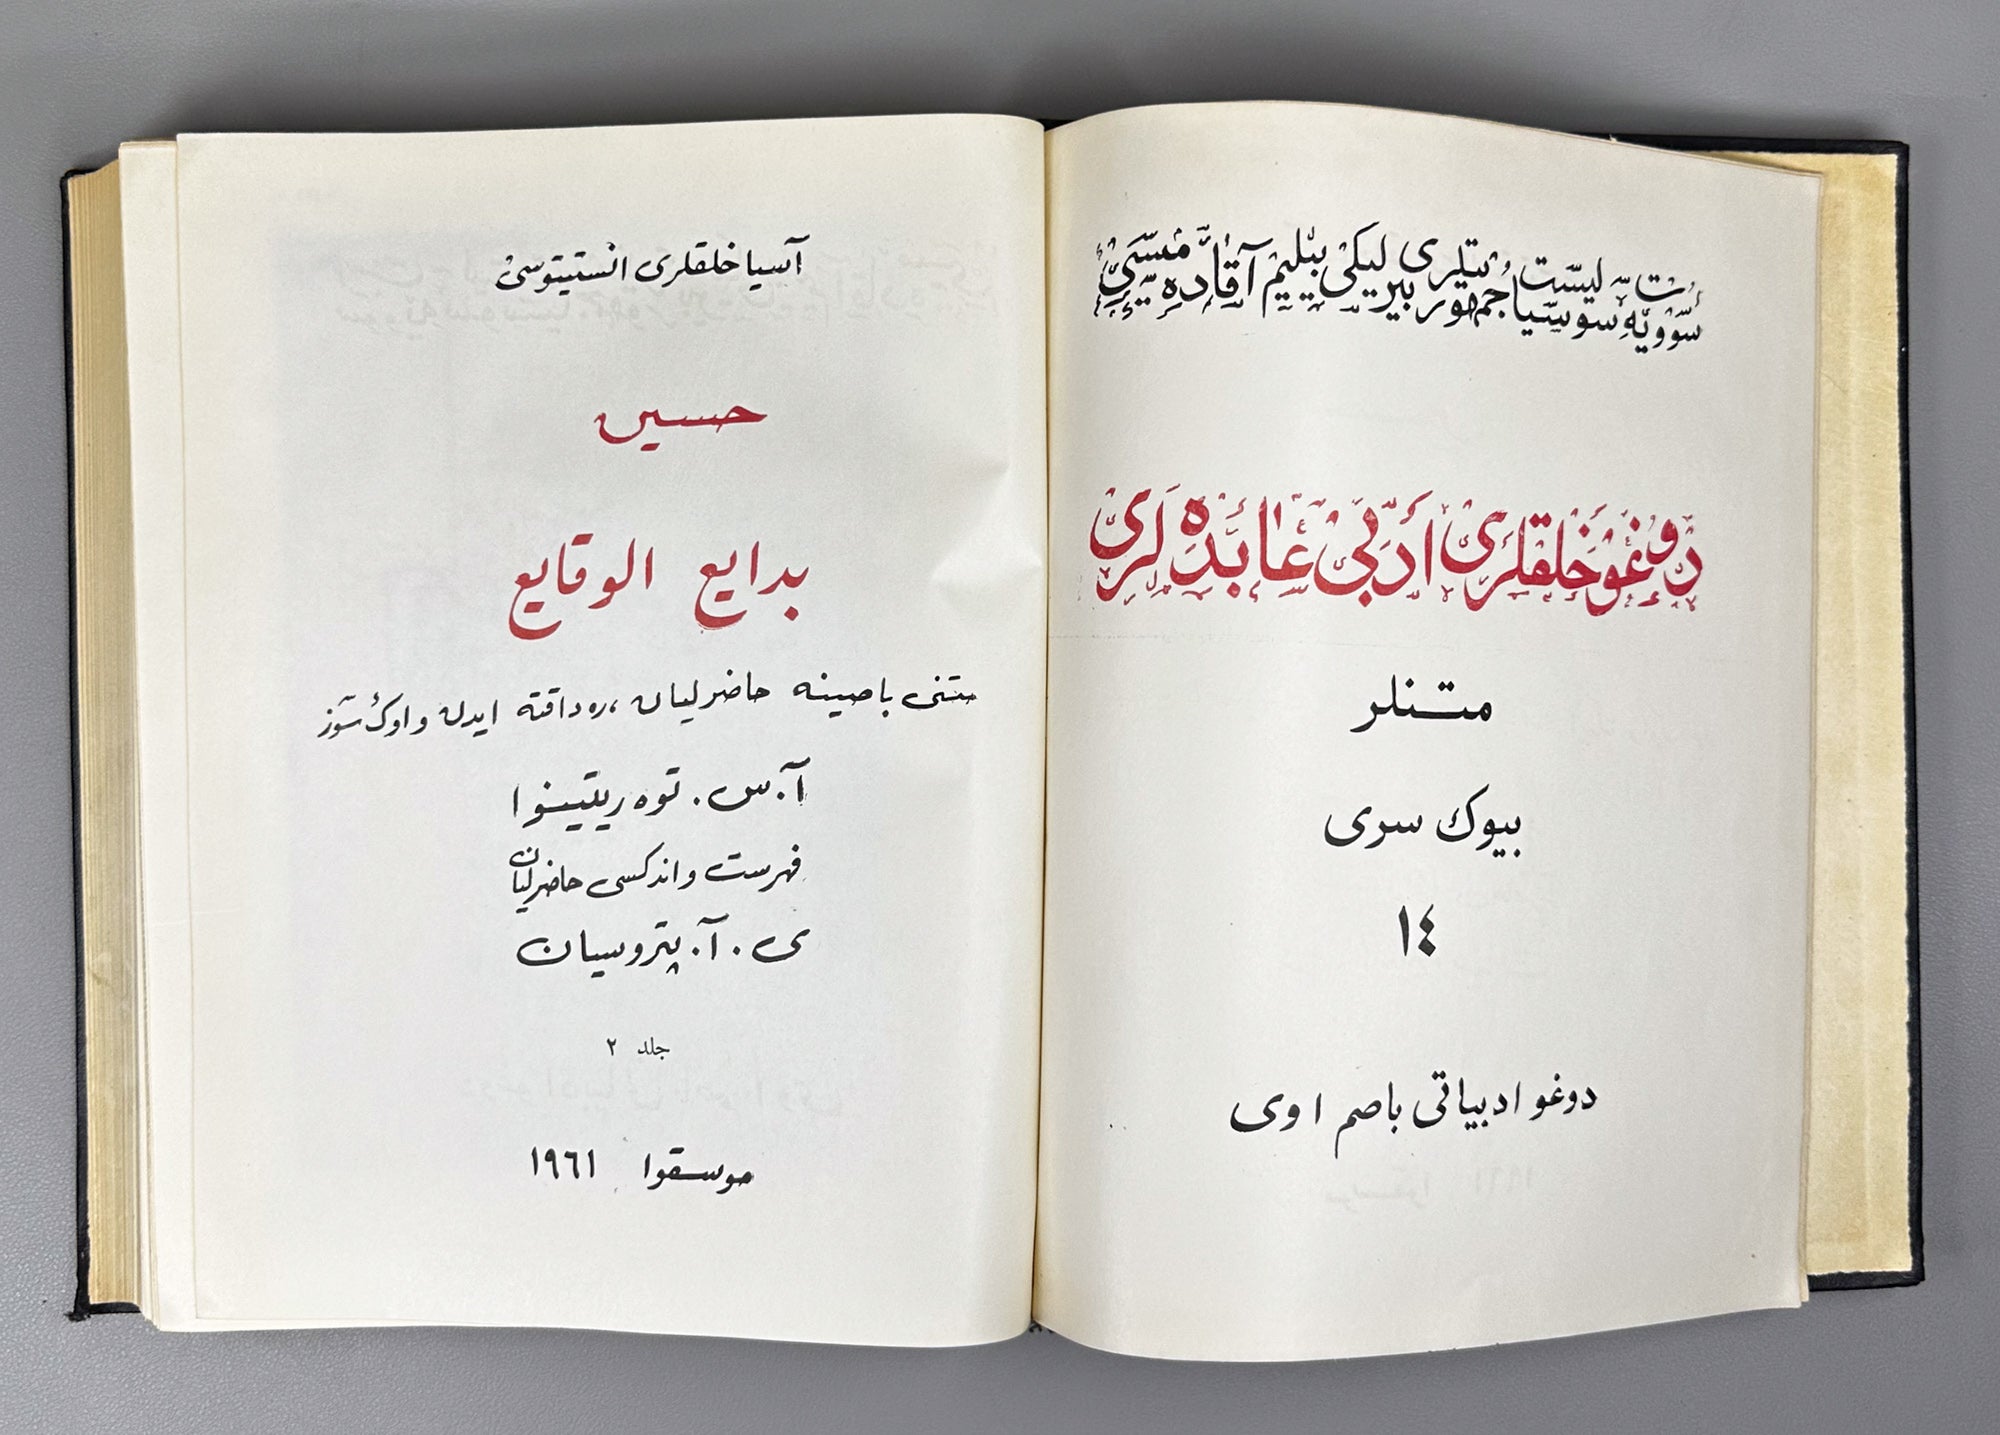 سوویه‌ت سوسیالیست جمهوریتلری بیرلیکی بیلیم آقاده‌میسی
دوغو خلقلری أدبی عابده‌لری
متنلر
بیوك سری
١٤
دوغو ادبیاتی باصم اوی
آسیا خلقلری انستیتوسی
حسین
بدایع الوقایع
متنی باصینه حاضرلیان، ره‌داقته ایدن و اوڭ سوز
آ.س. توه‌ریتینوا
فهرست و اندکسی حاضرلیان
ی. آ. پتروسیان
جلد ۲
موسقوا ١٩٦١